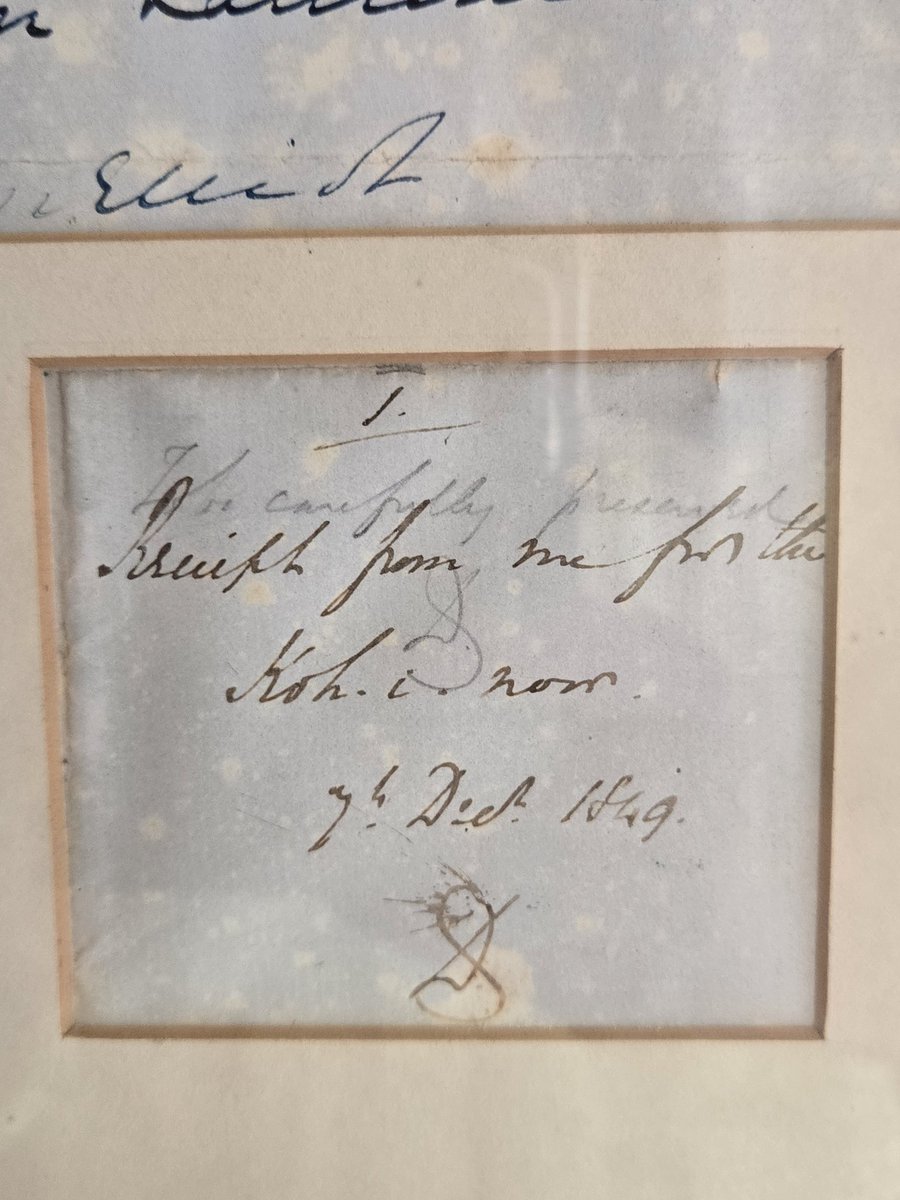 Elliot
1.
To be carefully preserved
Receipt from me for the
D
Koh. i. noor.
7th. Dect. 1849.
D